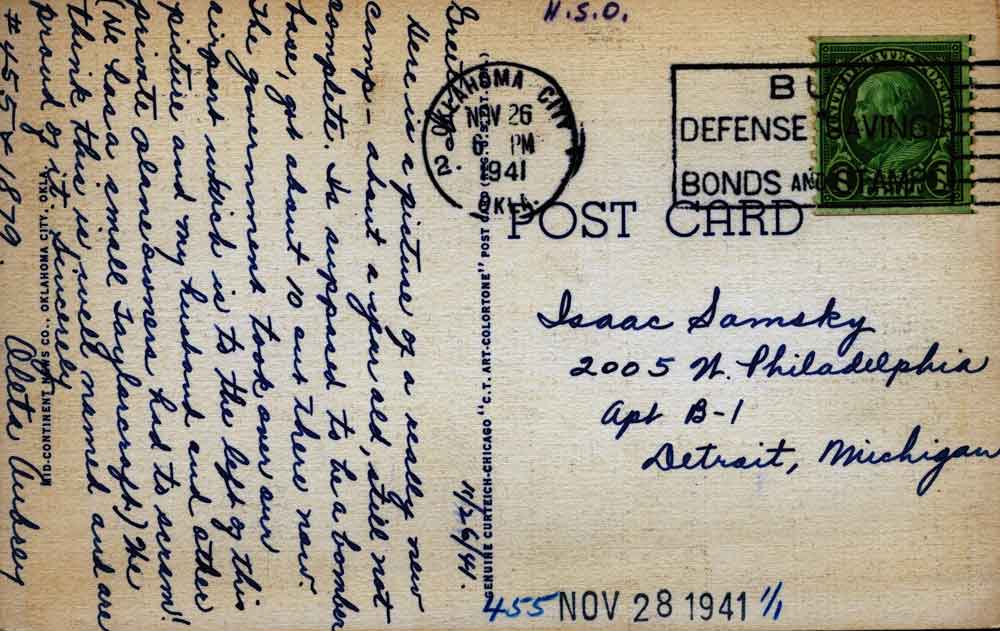 H.S.O.
11/26/41.
Here is a picture of a really new
camp - about a year old, still not
complete. Is supposed to be a bomber
base, got about 10 out there now.
The government took over our
airport which is to the left of this
picture and my husband and other
private plane owners had to scram!
(He has a small Taylorcraft) We
think this is well named and are
proud of it. Sincerely
#455 x 1879. Oleta
MID-CONTINENT NEWS CO., OKLAHOMA CITY, OKLA.
GENUINE CURTEICH-CHICAGO "C.T. ART-COLORTONE" POST CARD
OKLAHOMA CITY
NOV 26
6 PM
1941
OKLA.
2
BUY
DEFENSE SAVINGS
BONDS AND STAMPS
UNITED STATES POSTAGE
POST CARD
Isaac Samsky
2005 W. Philadelphia
Apt B-1
Detroit, Michigan
455 NOV 28 1941 1/1